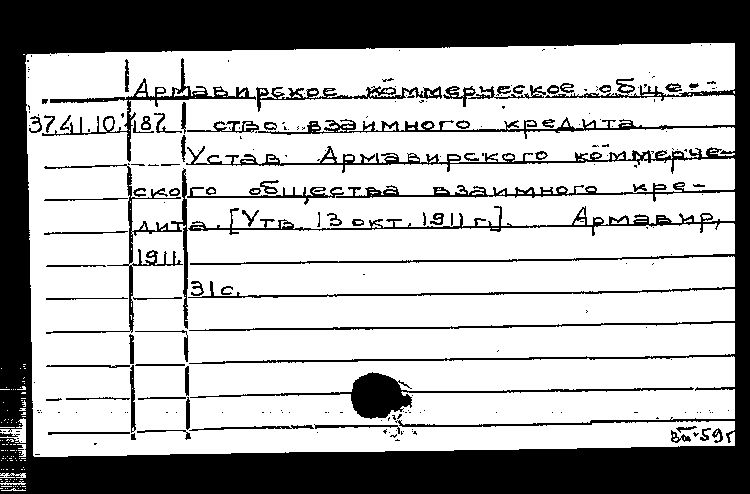 Армавирское коммерческое обще-
37.41.10.487. ство взаимного кредита.
Устав Армавирского коммерче-
ского общества взаимного кре-
дита. [Утв. 13 окт. 1911 г.]. Армавир,
1911.
31 с.